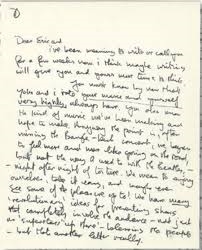 Dear Eric and
i've been meaning to write or call you
for a few weeks now. i think maybe writing
will give you and yours more time to think.
you must know by now that
you and i rate your music and yourself
very highly, always have.
kind of music we've been making and
hope to make
missing the Bangla-Desh concert, we began
to feel more and more like going on the road,
but not the way I used to with the Beatles,
- night after night of torture. We mean to enjoy
ourselves, take it easy, and maybe even
see some of the places we go to! We have many
'revolutionary' ideas for presenting shows
that completely involve the audience - and not just
as 'Superstars' up there - blessing the people
- but that's another letter really.